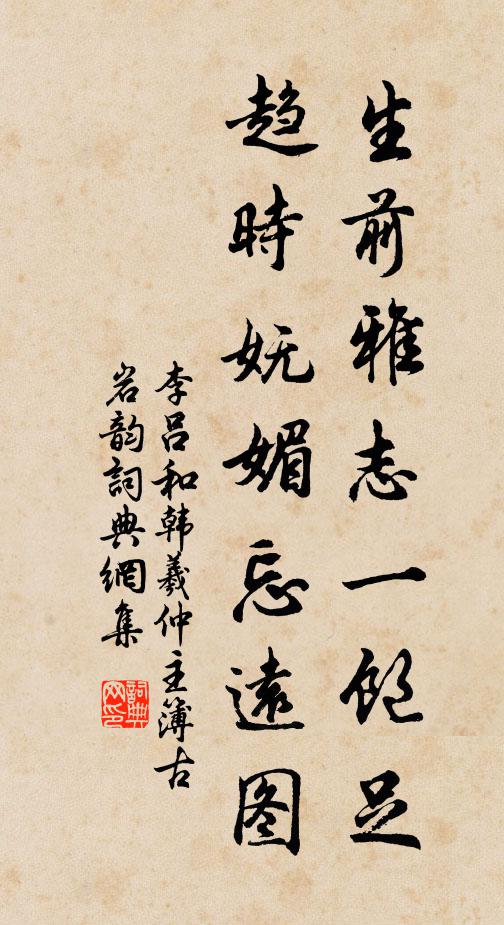 生前雅志一飽足
趋時妩媚忘遠图
李吕和韩羲仲主簿古
岩韵詞典網集
詞典网印